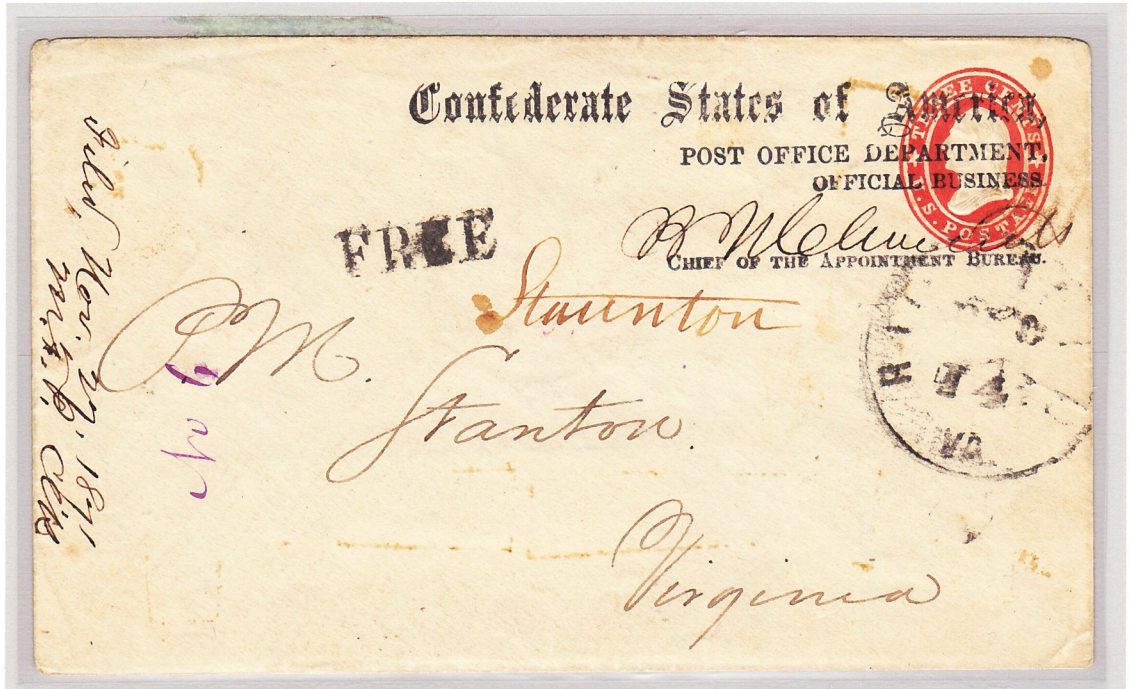 Confederate States of America,
POST OFFICE DEPARTMENT,
OFFICIAL BUSINESS.
THREE CENTS
U.S. POSTAGE
FREE
CHIEF OF THE APPOINTMENT BUREAU.
Staunton
P M.
Stanton
Virginia
No 6
Filed, Nov. 27, 1871
14
VA